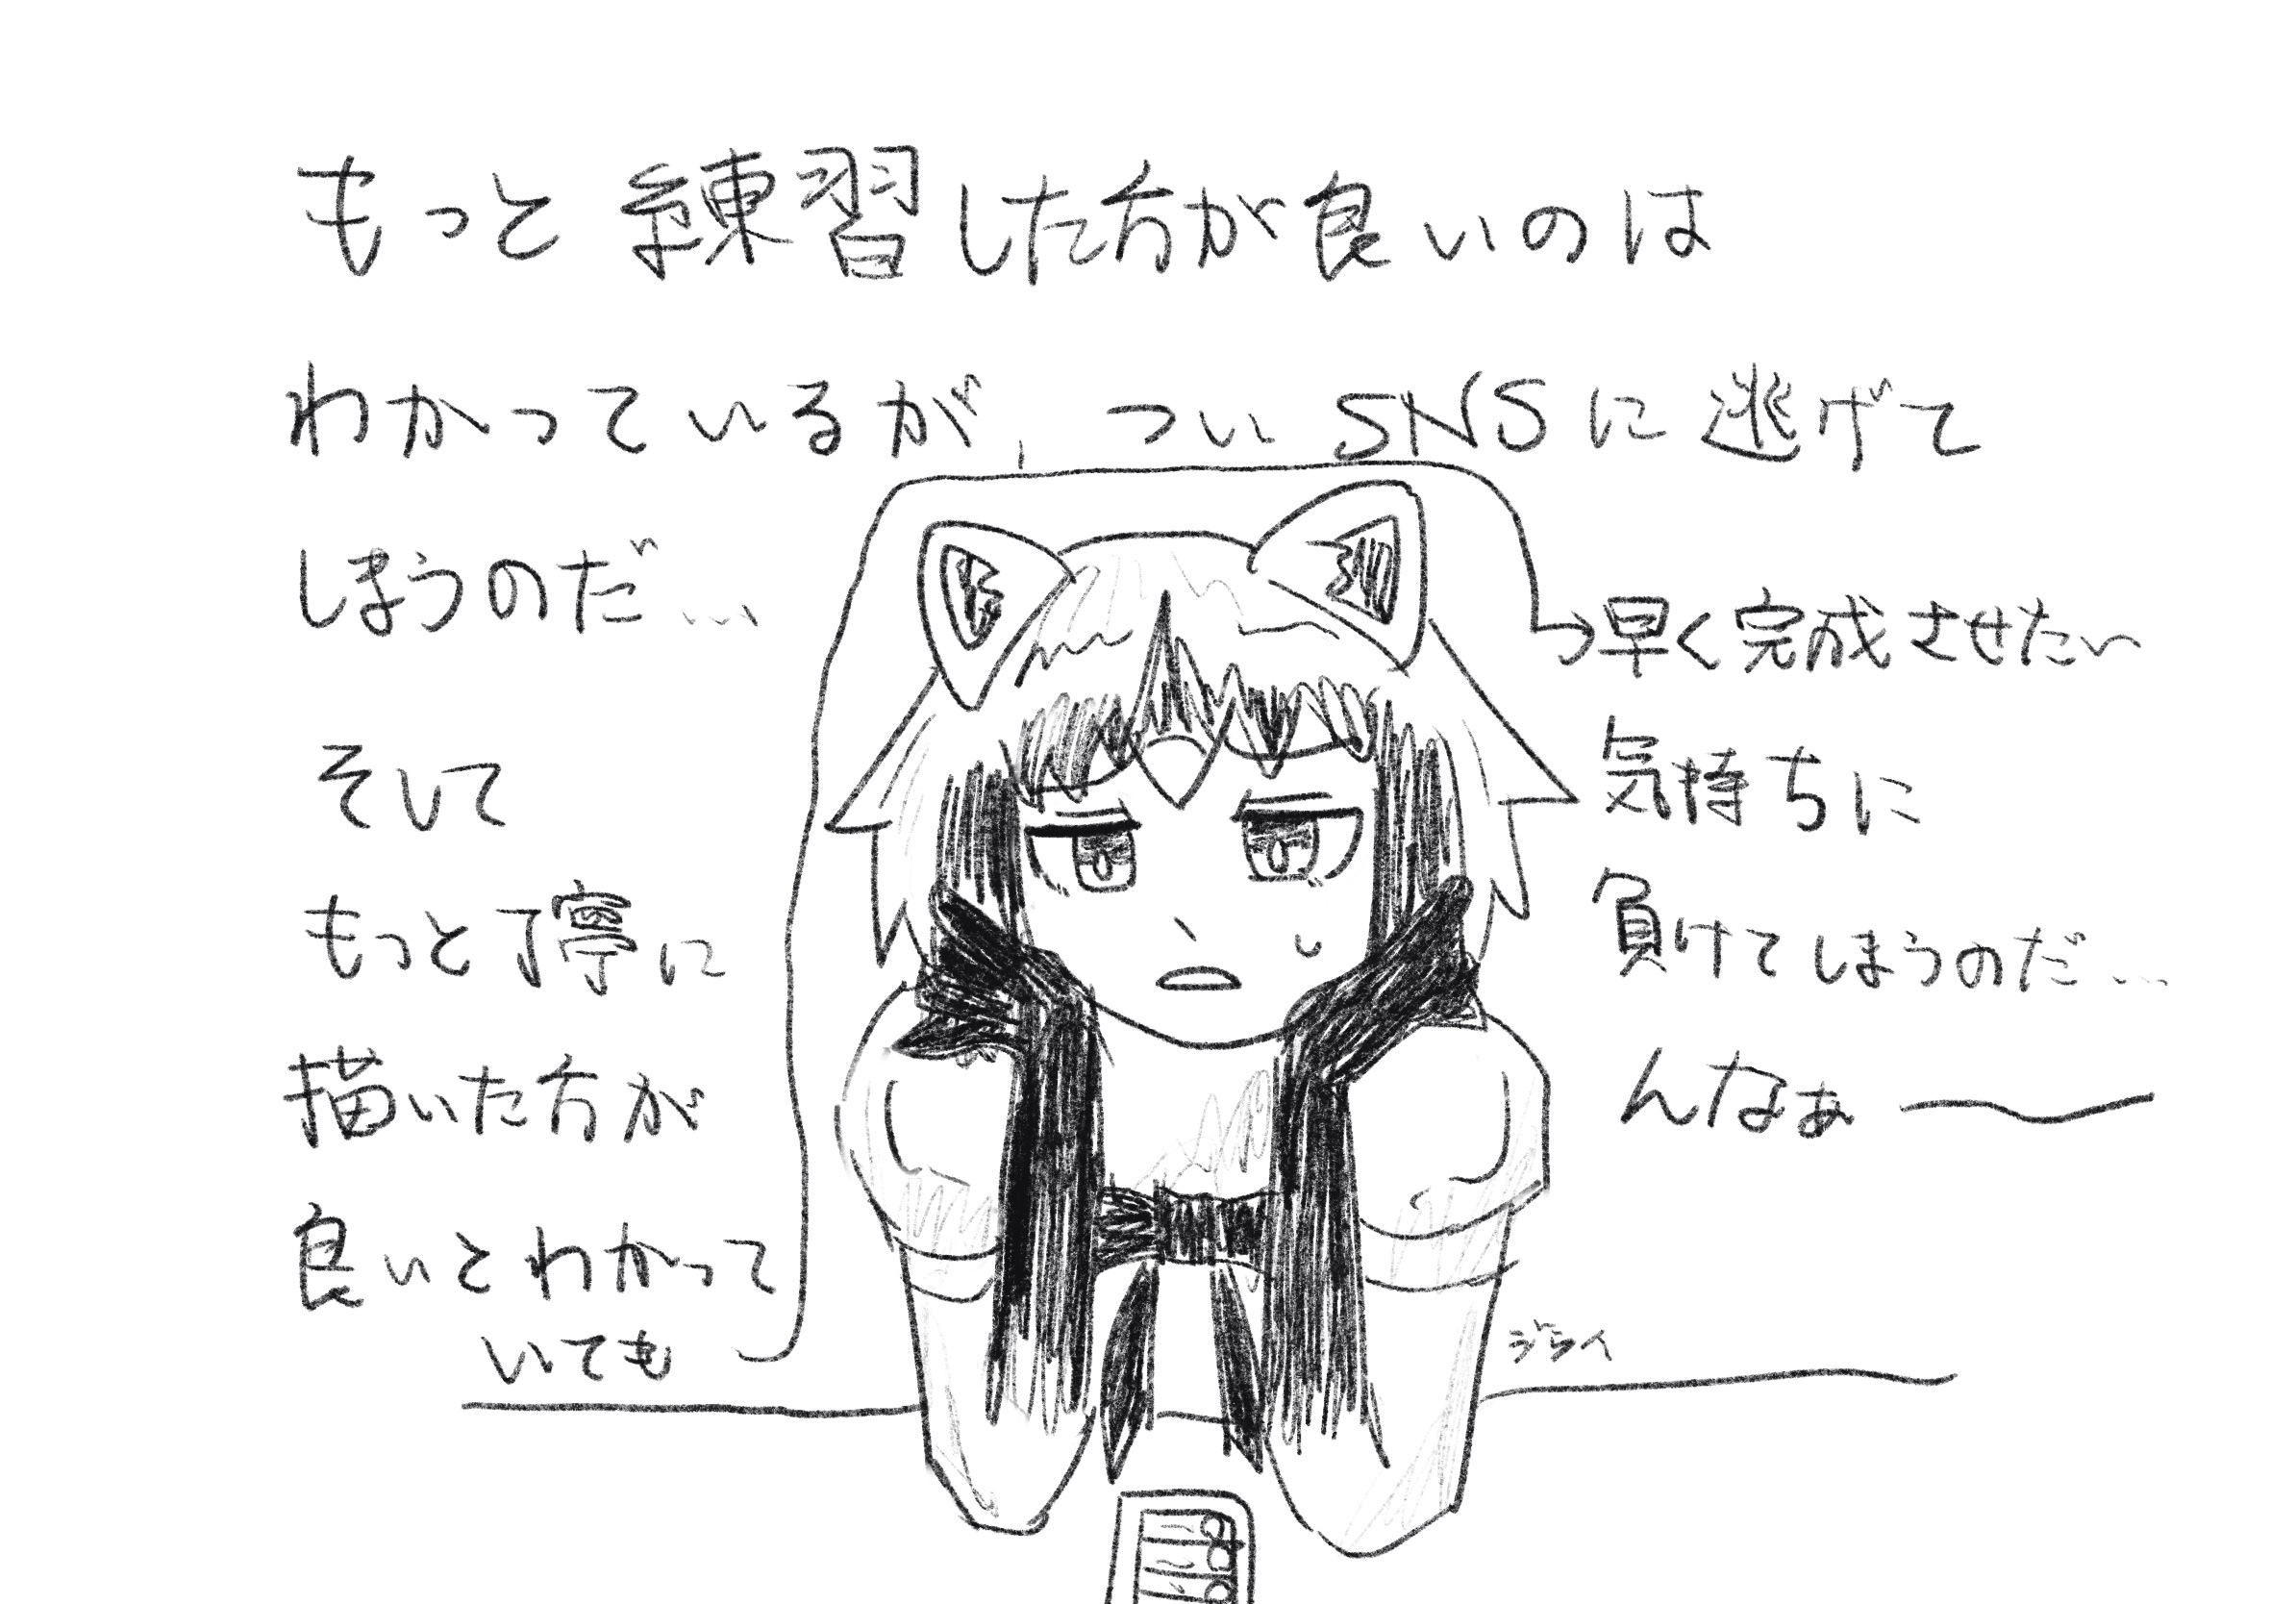 もっと練習した方が良いのは
わかっているが、ついSNSに逃げて
しまうのだ…
そして
もっと丁寧に
描いた方が
良いとわかって
いても
早く完成させたい
気持ちに
負けてしまうのだ…
んなぁ〜
ジライ